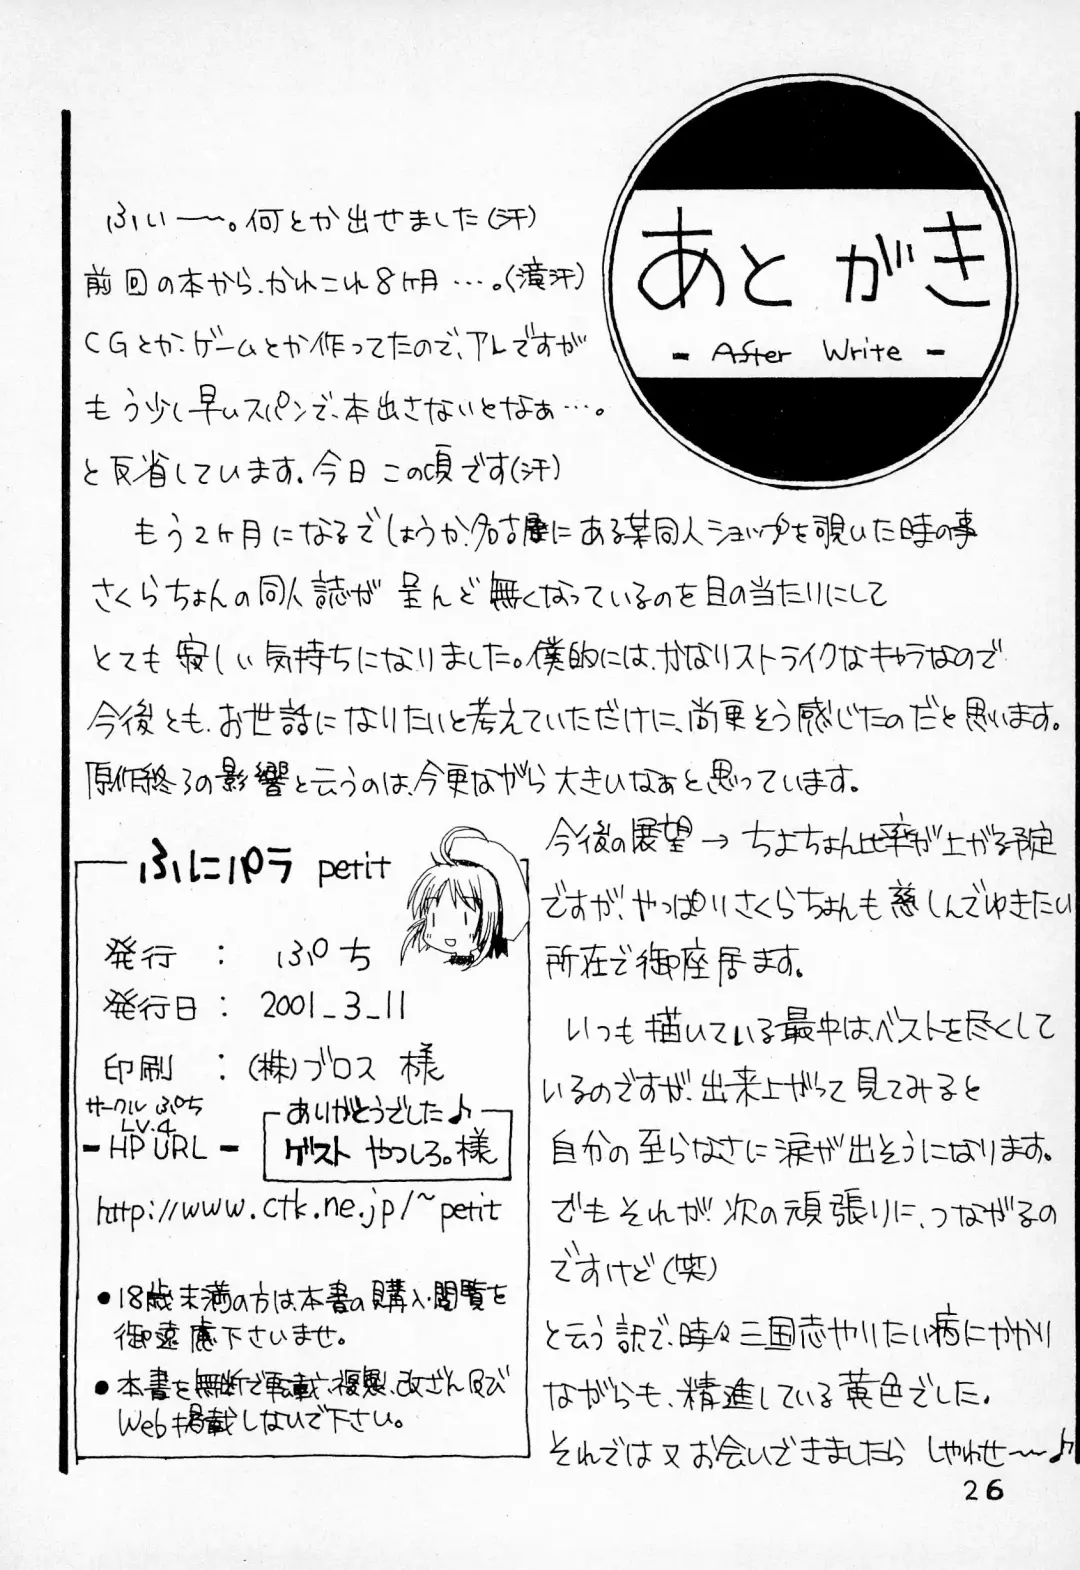 あとがき
- After Write -
ふぃ〜〜。何とか出せました(汗)
前回の本から、かれこれ8ヶ月…。(滝汗)
CGとか、ゲームとか作ってたので、アレですが
もう少し早いスパンで、本出さないとなぁ…。
と反省しています。今日この頃です(汗)
もう2ヶ月になるでしょうか、名古屋にある某同人ショップを覗いた時の事
さくらちょんの同人誌が呈んど無くなっているのを目の当たりにして
とても寂しい気持ちになりました。僕的には、かなりストライクなキャラなので
今後とも、お世話になりたいと考えていただけに、尚更そう感じたのだと思います。
原作終了の影響と云うのは、今更ながら大きいなぁと思っています。
今後の展望→ちよちょん比率が上がる予定
ですが、やっぱりさくらちょんも慈しんでゆきたい
所在で御座居ます。
いつも描いている最中は、ベストを尽くして
いるのですが、出来上がって見てみると
自分の至らなさに涙が出そうになります。
でもそれが次の頑張りに、つながるの
ですけど(笑)
と云う訳で、時々三国志やりたい病にかかり
ながらも、精進している黄色でした。
それでは又お会いできましたらしゃわせ〜〜♪
ふにパラ petit
発行 : ぷち
発行日 : 2001_3_11
印刷 : (株)ブロス 様
サークル ぷち
LV.4
- HP URL -
ありがとうでした♪
ゲスト やつしろ。様
http://www.ctk.ne.jp/~petit
●18歳未満の方は、本書の購入・閲覧を
御遠慮下さいませ。
●本書を無断で転載、複製、改ざん及び
Web掲載しないで下さい。
26